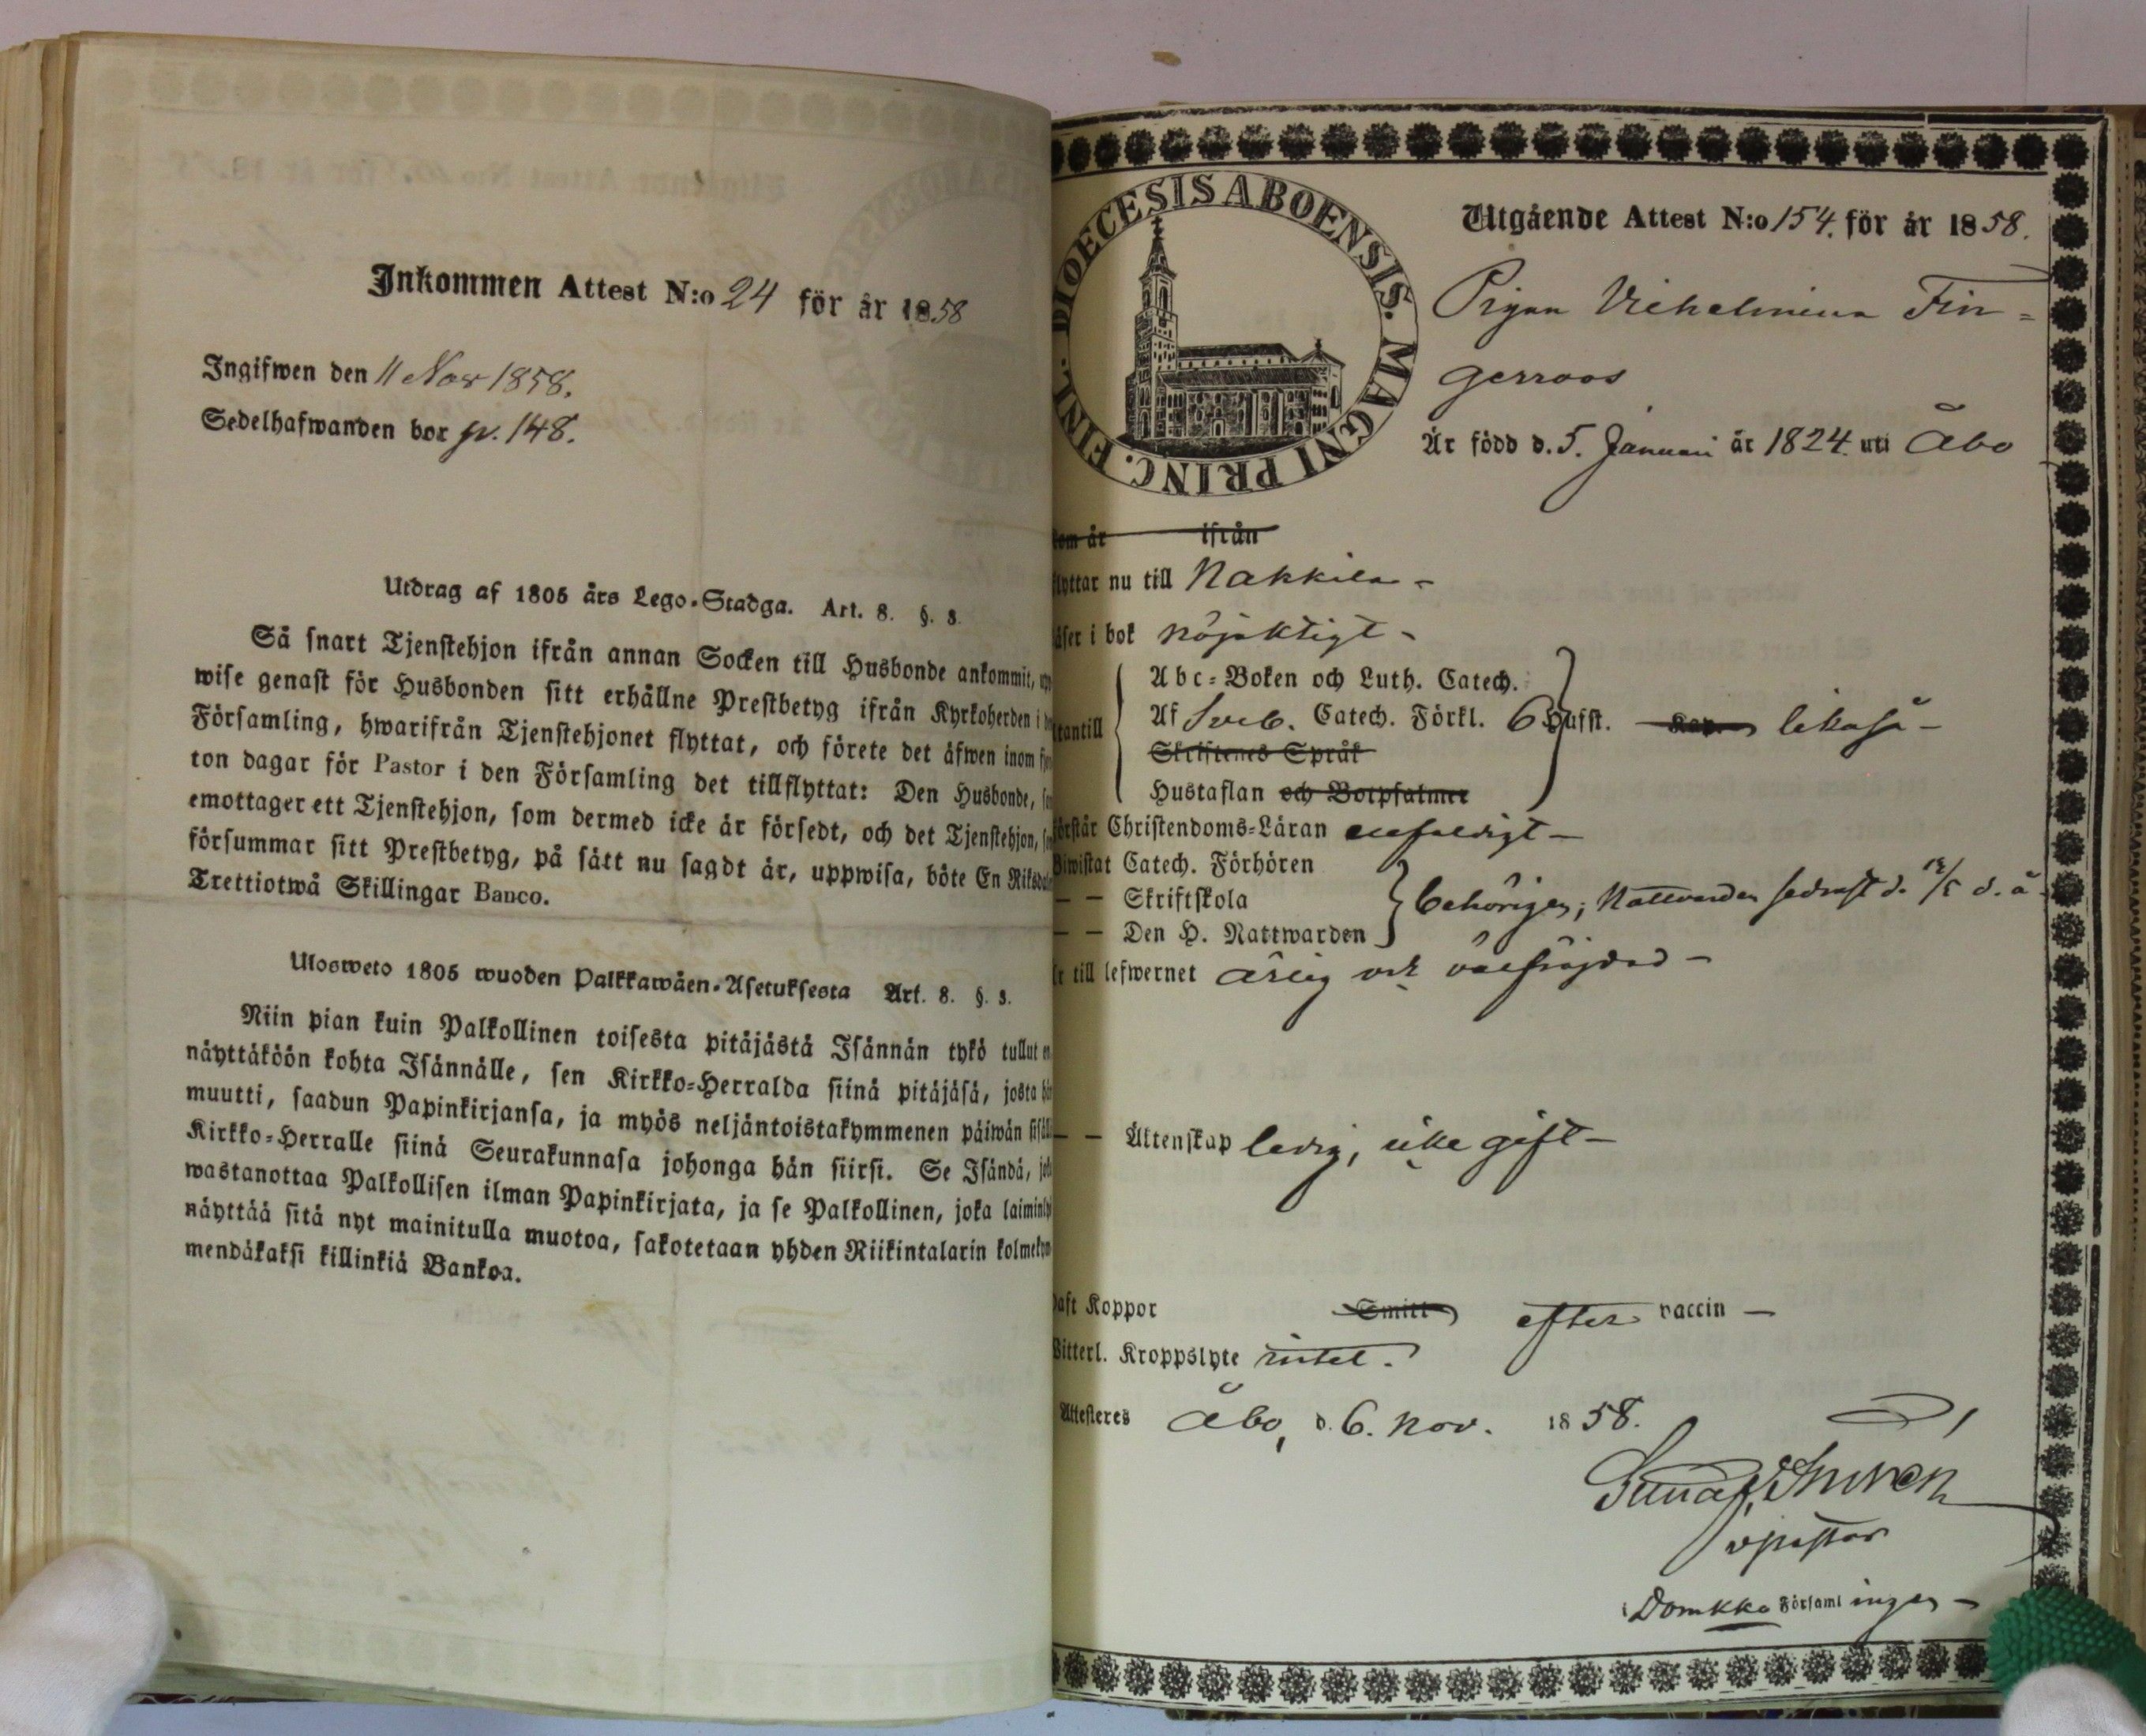 Inkommen Attest N:o 24 för år 1858
Ingifwen den 11 Nov 1858.
Sedelhafwanden bor p. 148.
Utdrag af 1805 års Lego-Stadga. Art. 8. §. 3.
Så snart Tjenstehjon ifrån annan Socken till Husbonde ankommit, upp
wise genast för Husbonden sitt erhållne Prestbetyg ifrån Kyrkoherden i
Församling, hwarifrån Tjenstehjonet flyttat, och förete det äfwen inom
ton dagar för Pastor i den Församling det tillflyttat: Den Husbonde,
emottager ett Tjenstehjon, som dermed icke är försedt, och det Tjenstehjon,
försummar sitt Prestbetyg, på sätt nu sagdt är, uppwisa, böte En Riksdaler
Trettiotwå Skillingar Banco.
Ulosweto 1805 wuoden Palkkawäen-Asetuksesta Art. 8. §. 3.
Niin pian kuin Palkollinen toisesta pitäjästä Isännän tykö tullut on
näyttäköön kohta Isännälle, sen Kirkko-Herralda siinä pitäjäsä, josta hän
muutti, saadun Papinkirjansa, ja myös neljäntoistakymmenen päiwän sisällä
Kirkko-Herralle siinä Seurakunnasa johonga hän siirsi. Se Isändä, joka
wastanottaa Palkollisen ilman Papinkirjata, ja se Palkollinen, joka laiminlyö
näyttää sitä nyt mainitulla muotoa, sakotetaan yhden Riikintalarin kolmekym
mendäkaksi killinkiä Bankoa.
DIOECESIS ABOENSIS. MAGNI PRINC. FINL.
Utgående Attest N:o 154. för år 1858.
Pigan Vilhelmina Fin=
gerroos
Är född d. 5. Januari år 1824. uti Åbo
som är ifrån
flyttar nu till Nakkila -
läser i bok nöjaktigt -
Abc-Boken och Luth. Catech.
utantill Af Sveb. Catech. Förkl. 6 Hufst. Kap. likaså -
Skriftenes Språk
Hustaflan och Botpsalmer
Förstår Christendoms-Läran enfaldigt -
Biwistat Catech. Förhören
— — Skriftskola behörigen; Nattvarden sednast d. /5 d. å.
— — Den H. Nattwarden
Är till lefwernet ärlig och välfräjdad -
— — Äktenskap ledig, icke gift -
Haft Koppor Smitt efter vaccin —
Witterl. Kroppslyte intet.
Attesteres Åbo, d. 6. Nov. 1858.
v pastor
i Domkko Församlingen -